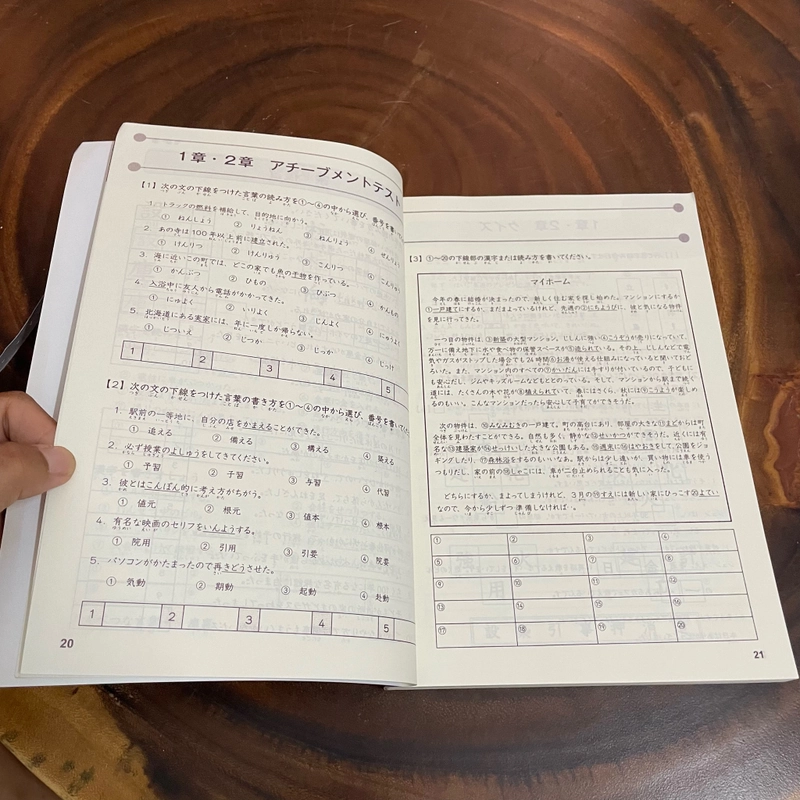 1章・2章 アチーブメントテスト
【1】次の文の下線をつけた言葉の読み方を①~④の中から選び、番号を書いて
1. トラックの燃料を補給して、目的地に向かう。
① ねんしょう ② りょうねん ③ ねんりょう ④
2. あの寺は100年以上前に建立された。
① けんりつ ② けんりゅう ③ こんりつ ④
3. 海に近いこの町では、どこの家でも魚の干物を作っている。
① かんぶつ ② ひもの ③ ひぶつ ④ かんもの
4. 入浴中に友人から電話がかかってきた。
① にゅよく ② いりよく ③ じんよく ④ にゅうよく
5. 北海道にある実家には、年に一度しか帰らない。
① じついえ ② じつか ③ じっか ④ じっけ
1 2 3 4 5
【2】次の文の下線をつけた言葉の書き方を①~④の中から選び、番号を書いて
1. 駅前の一等地に、自分の店をかまえることができた。
① 追える ② 備える ③ 構える ④ 築える
2. 必ず授業のよしゅうをしてきてください。
① 予習 ② 子習 ③ 与習 ④ 代習
3. 彼とはこんぽん的に考え方がちがう。
① 値元 ② 根元 ③ 値本 ④ 根本
4. 有名な映画のセリフをいんようする。
① 院用 ② 引用 ③ 引要 ④ 院要
5. パソコンがかたまったので再きどうさせた。
① 気動 ② 期動 ③ 起動 ④ 赴動
1 2 3 4 5
20
【3】①~⑳の下線部の漢字または読み方を書いてください。
マイホーム
今年の春に結婚が決まったので、新しく住む家を探し始めた。マンションにするか
①一戸建てにするか、まだまよっているけれど、先週の②にちように、气になる物件
を見に行ってきた。
一つ目の物件は、③新築の大型マンション。じしんに強い④こうぞうが売りになっていて、
万一に備え地下に水や食べ物の保管スペースが⑤造られている。その上、じしんなどで電
気やガスがストップした場合でも24時間⑥お湯が使える仕組みになっていると聞いておど
ろいた。また、マンション内のすべての⑦かいだんには手すりが付いているので、子どもに
も安心だし、ジムやキッズルームなどもととのっている。そして、マンションから駅まで続く
道には、たくさんの木や花が⑧植えられていて、春にはさくら、秋には⑨こうようが楽しめ
るのもいい。こんなマンションだったら安心して子育てができそうだ。
次の物件は、⑩みなみむきの一戸建て。町の高台にあり、部屋の大きな⑪まどからは町
全体を見わたすことができる。自然も多く、静かな⑫せいかつができそうだ。近くには有
名な⑬建築家が⑭せっけいした大きな公園もある。⑮週末に⑯はやおきをして、公園をジョ
ギングしたり、⑰森林浴をするのもいいなあ。駅からは少し遠いが、買い物には車を使う
つもりだし、家の前の⑱しゃこには、車が二台止められることも気に入った。
どちらにするか、まよってしまうけれど、3月の⑲すえには新しい家にひっこす⑳よてい
なので、今から少しずつ準備しなければ…。
① ② ③ ④
⑤ ⑥ ⑦ ⑧
⑨ ⑩ ⑪ ⑫
⑬ ⑭ ⑮ ⑯
⑰ ⑱ ⑲ ⑳
21